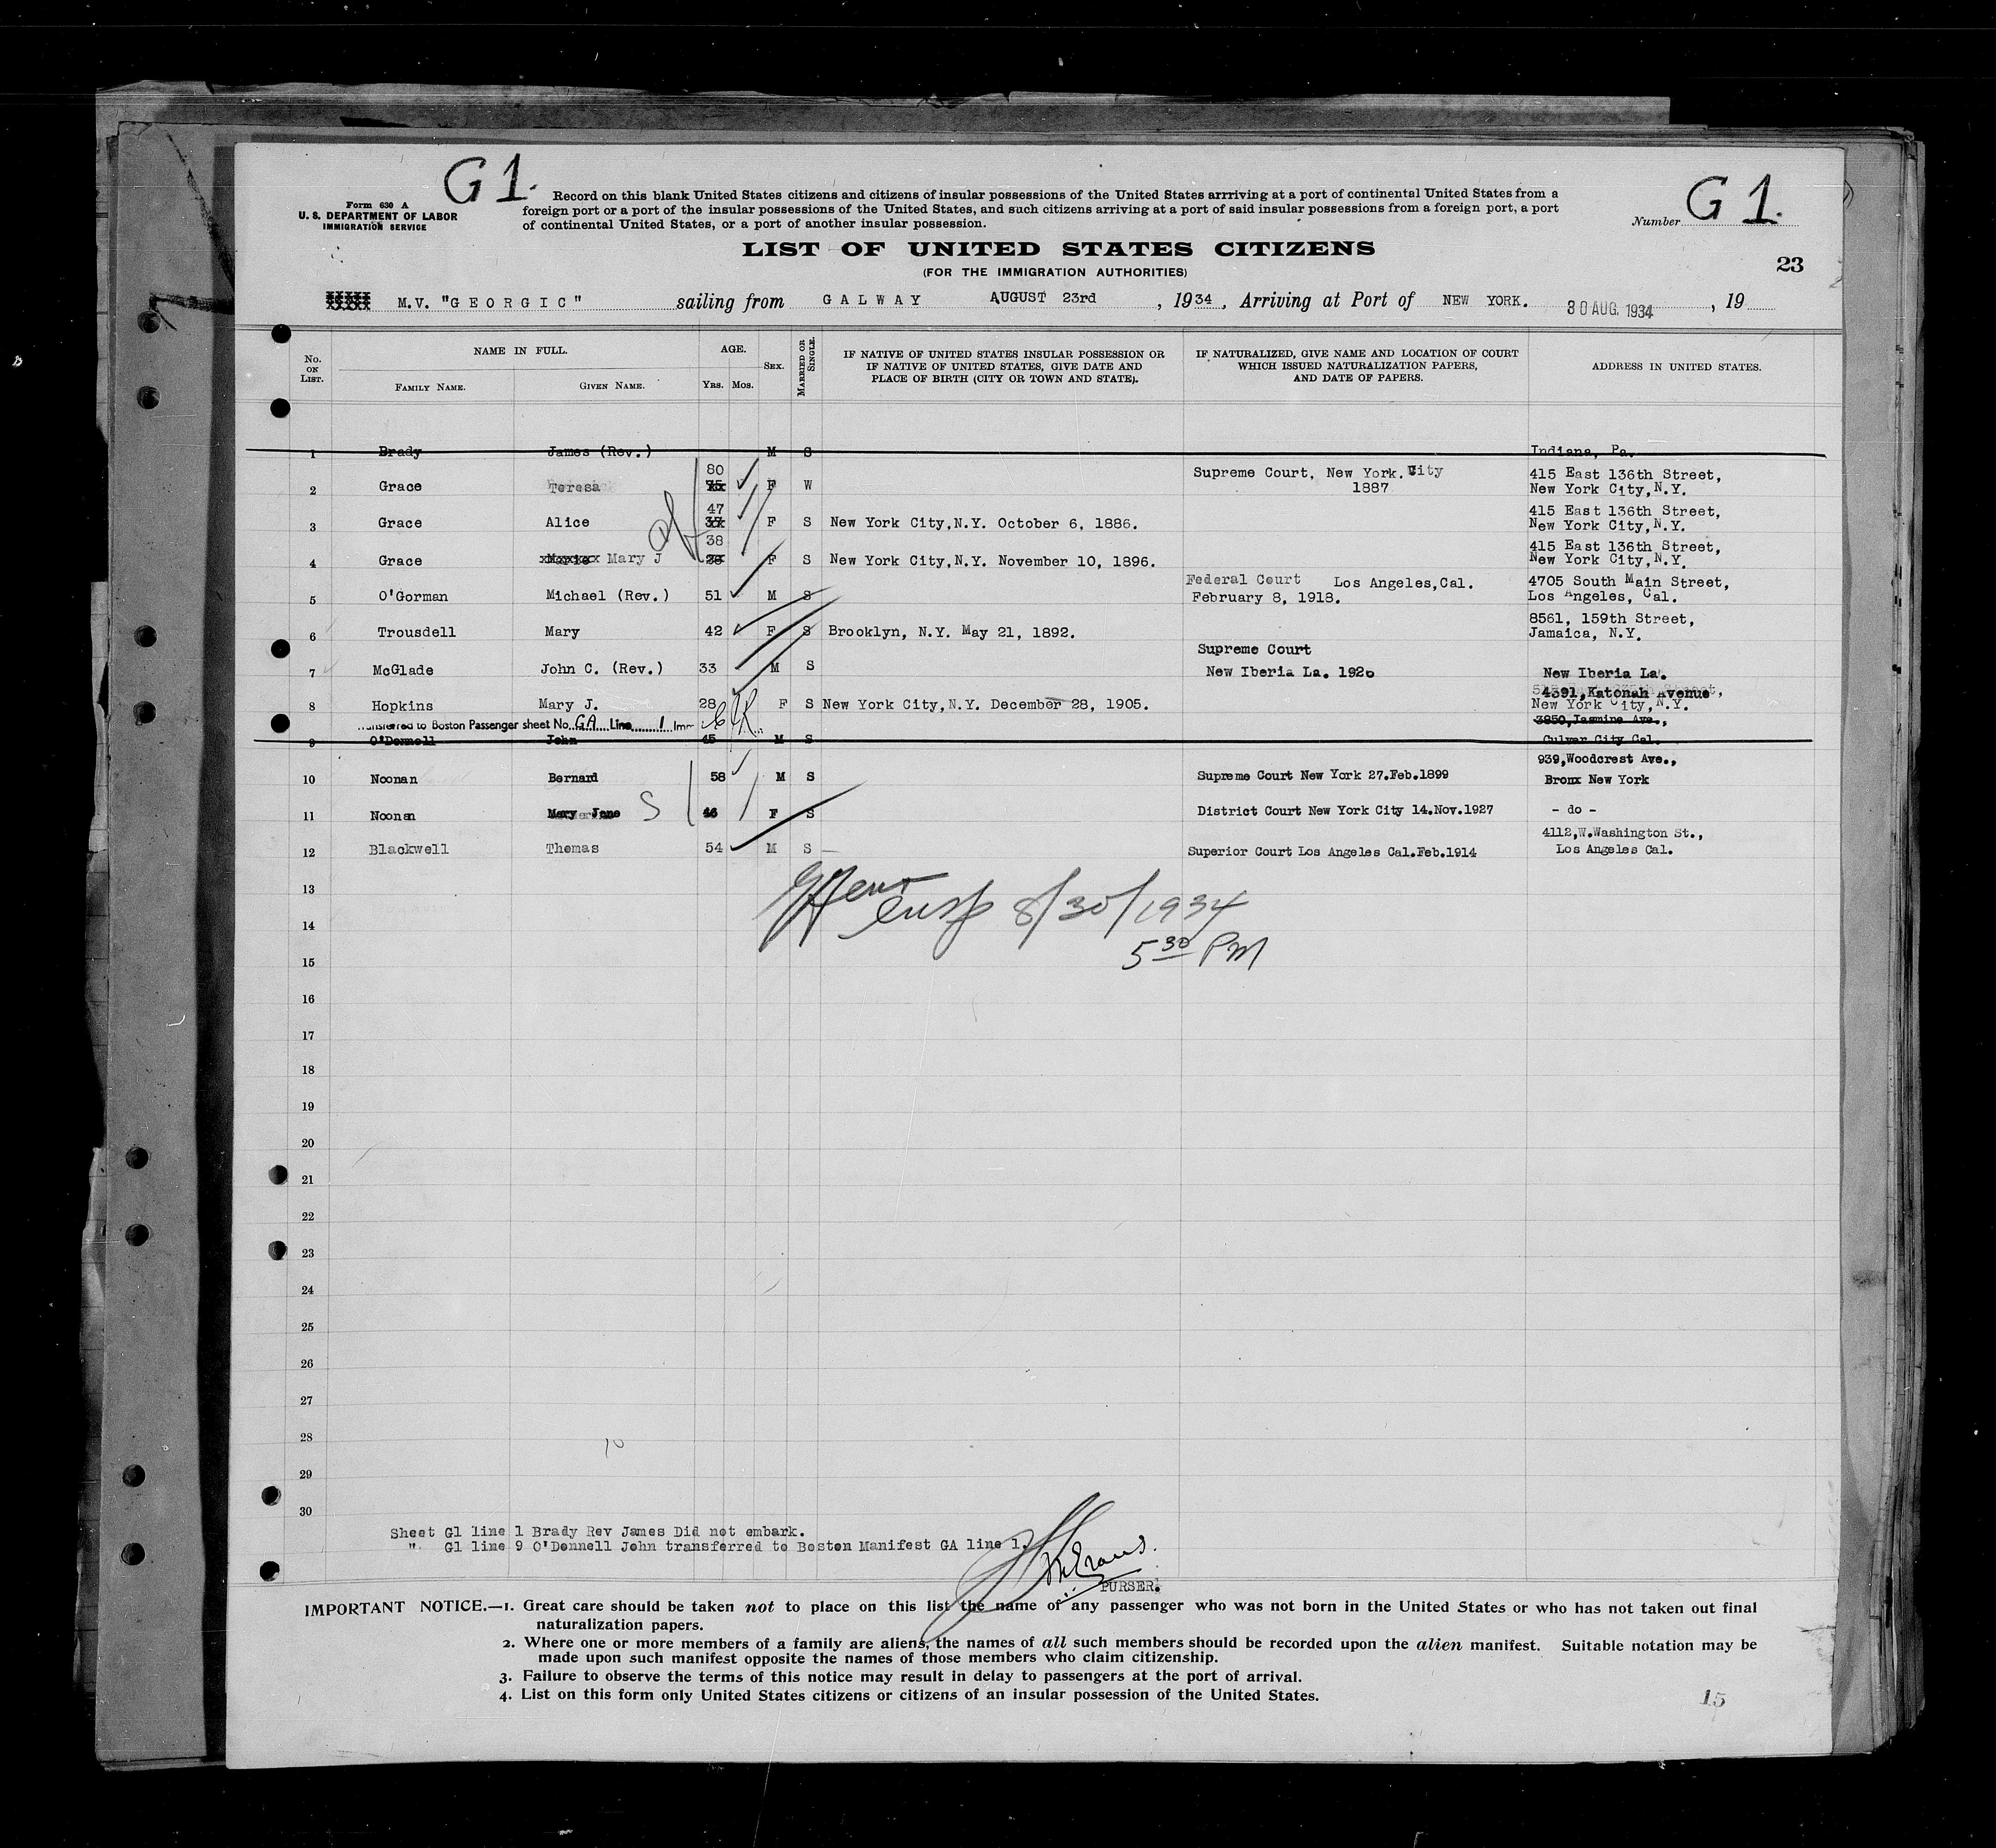 G1.
G1.
Form 630 A
U. S. DEPARTMENT OF LABOR
IMMIGRATION SERVICE
Record on this blank United States citizens and citizens of insular possessions of the United States arrriving at a port of continental United States from a
foreign port or a port of the insular possessions of the United States, and such citizens arriving at a port of said insular possessions from a foreign port, a port
of continental United States, or a port of another insular possession.
Number
LIST OF UNITED STATES CITIZENS
(FOR THE IMMIGRATION AUTHORITIES)
23
M.V. "GEORGIC" sailing from GALWAY AUGUST 23rd, 1934, Arriving at Port of NEW YORK. 30 AUG. 1934, 19
No. ON LIST. NAME IN FULL. AGE. SEX. MARRIED OR SINGLE. IF NATIVE OF UNITED STATES INSULAR POSSESSION OR IF NATIVE OF UNITED STATES, GIVE DATE AND PLACE OF BIRTH (CITY OR TOWN AND STATE). IF NATURALIZED, GIVE NAME AND LOCATION OF COURT WHICH ISSUED NATURALIZATION PAPERS, AND DATE OF PAPERS. ADDRESS IN UNITED STATES.
FAMILY NAME. GIVEN NAME. YRS. MOS.
1 Brady James (Rev.) M S Indiana, Pa.
80 Supreme Court, New York. City 415 East 136th Street,
2 Grace Teresa F W 1887 New York City, N.Y.
47 415 East 136th Street,
3 Grace Alice 37 F S New York City,N.Y. October 6, 1886. New York City, N.Y.
38 415 East 136th Street,
4 Grace Marie Mary J 28 F S New York City,N.Y. November 10, 1896. New York City, N.Y.
Federal Court Los Angeles,Cal. 4705 South Main Street,
5 O'Gorman Michael (Rev.) 51 M S February 8, 1918. Los Angeles, Cal.
8561, 159th Street,
6 Trousdell Mary 42 F S Brooklyn, N.Y. May 21, 1892. Jamaica, N.Y.
Supreme Court
7 McGlade John C. (Rev.) 33 M S New Iberia La. 1920 New Iberia La.
4391,Katonah Avenue
8 Hopkins Mary J. 28 F S New York City,N.Y. December 28, 1905. New York City, N.Y.
Transferred to Boston Passenger sheet No. GA Line 1 Imm 3850,Jasmine Ave.,
9 O'Donnell John 45 M S Culver City Cal.
939,Woodcrest Ave.,
10 Noonan Bernard 58 M S Supreme Court New York 27.Feb.1899 Bronx New York
11 Noonan Mary Jane S 46 F S District Court New York City 14.Nov.1927 - do -
4112,W.Washington St.,
12 Blackwell Thomas 54 M S Superior Court Los Angeles Cal.Feb.1914 Los Angeles Cal.
13
insp 8/30/1934
14
5 30 PM
15
16
17
18
19
20
21
22
23
24
25
26
27
28
10
29
30
Sheet G1 line 1 Brady Rev James Did not embark.
" G1 line 9 O'Donnell John transferred to Boston Manifest GA line 1.
Evans.
PURSER.
IMPORTANT NOTICE.—1. Great care should be taken not to place on this list the name of any passenger who was not born in the United States or who has not taken out final
naturalization papers.
2. Where one or more members of a family are aliens, the names of all such members should be recorded upon the alien manifest. Suitable notation may be
made upon such manifest opposite the names of those members who claim citizenship.
3. Failure to observe the terms of this notice may result in delay to passengers at the port of arrival.
4. List on this form only United States citizens or citizens of an insular possession of the United States.
15